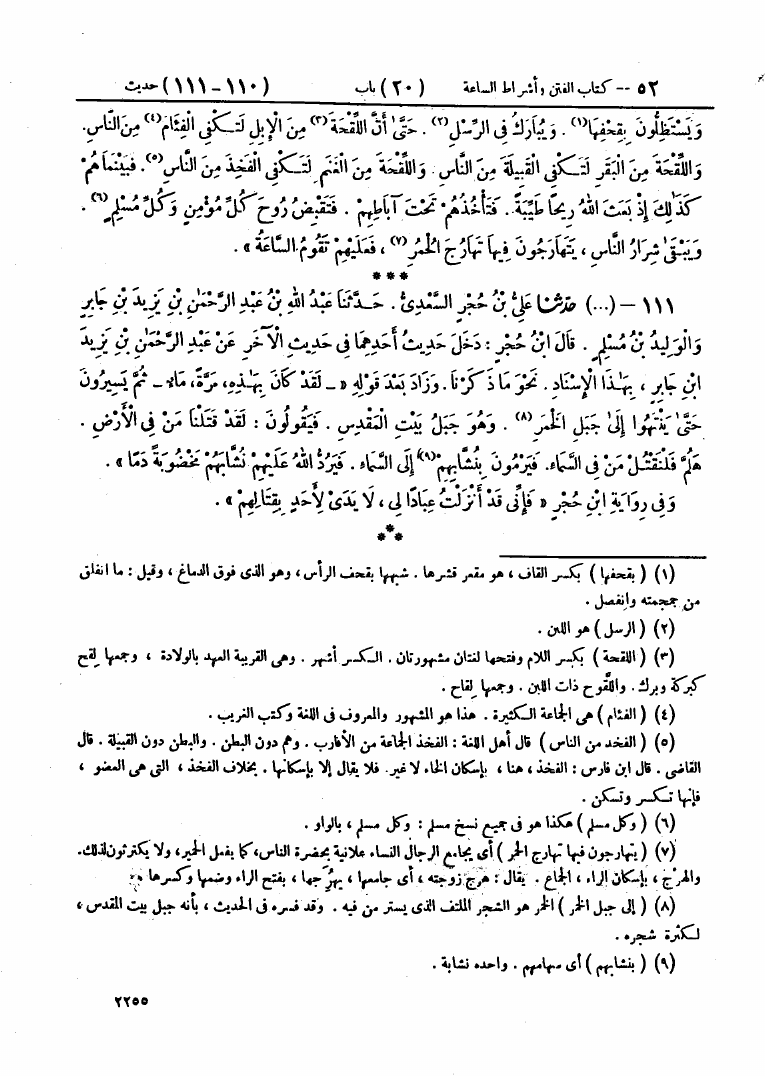 ٥٢ -- كتاب الفتن وأشراط الساعة (٢٠) باب (١١٠-١١١) حديث
وَيَسْتَظِلُّونَ بِقِحْفِهَا(١). وَيُبَارَكُ فِى الرِّسْلِ(٢). حَتَّىٰ أَنَّ اللِّقْحَةَ(٣) مِنَ الْإِبِلِ لَتَكْفِى الْفِئَامَ(٤) مِنَ النَّاسِ.
وَاللِّقْحَةَ مِنَ الْبَقَرِ لَتَكْفِى الْقَبِيلَةَ مِنَ النَّاسِ. وَاللِّقْحَةَ مِنَ الْغَنَمِ لَتَكْفِى الْفَخِذَ مِنَ النَّاسِ(٥). فَبَيْنَمَا هُمْ
كَذٰلِكَ إِذْ بَعَثَ اللهُ رِيحًا طَيِّبَةً. فَتَأْخُذُهُمْ تَحْتَ آبَاطِهِمْ. فَتَقْبِضُ رُوحَ كُلِّ مُؤْمِنٍ وَكُلِّ مُسْلِمٍ(٦).
وَيَبْقَىٰ شِرَارُ النَّاسِ، يَتَهَارَجُونَ فِيهَا تَهَارُجَ الْحُمُرِ(٧)، فَعَلَيْهِمْ تَقُومُ السَّاعَةُ».
***
١١١ – (...) حدّثنا عَلِىُّ بْنُ حُجْرٍ السَّعْدِىُّ. حَدَّثَنَا عَبْدُ اللهِ بْنُ عَبْدِ الرَّحْمَٰنِ بْنِ يَزِيدَ بْنِ جَابِرٍ
وَالْوَلِيدُ بْنُ مُسْلِمٍ. قَالَ ابْنُ حُجْرٍ: دَخَلَ حَدِيثُ أَحَدِهِمَا فِى حَدِيثِ الْآخَرِ عَنْ عَبْدِ الرَّحْمَٰنِ بْنِ يَزِيدَ
ابْنِ جَابِرٍ، بِهَٰذَا الْإِسْنَادِ. نَحْوَ مَا ذَكَرْنَا. وَزَادَ بَعْدَ قَوْلِهِ «- لَقَدْ كَانَ بِهَٰذِهِ، مَرَّةً، مَاءٌ - ثُمَّ يَسِيرُونَ
حَتَّىٰ يَنْتَهُوا إِلَىٰ جَبَلِ الْخَمَرِ(٨). وَهُوَ جَبَلُ بَيْتِ الْمَقْدِسِ. فَيَقُولُونَ: لَقَدْ قَتَلْنَا مَنْ فِى الْأَرْضِ.
هَلُمَّ فَلْنَقْتُلْ مَنْ فِى السَّمَاءِ. فَيَرْمُونَ بِنُشَّابِهِمْ(٩) إِلَى السَّمَاءِ. فَيَرُدُّ اللهُ عَلَيْهِمْ نُشَّابَهُمْ مَخْضُوبَةً دَمًا».
وَفِى رِوَايَةِ ابْنِ حُجْرٍ «فَإِنِّى قَدْ أَنْزَلْتُ عِبَادًا لِى، لَا يَدَىْ لِأَحَدٍ بِقِتَالِهِمْ».
***
(١) (بقحفها) بكسر القاف، هو مقعر قشرها. شبهها بقحف الرأس، وهو الذى فوق الدماغ، وقيل: ما انفلق
من جمجمته وانفصل.
(٢) (الرسل) هو اللبن.
(٣) (اللقحة) بكسر اللام وفتحها لغتان مشهورتان. الكسر أشهر. وهى القريبة العهد بالولادة، وجمعها لِقَح
كبركة وبرك. واللَّقوح ذات اللبن. وجمعها لِقاح.
(٤) (الفئام) هى الجماعة الكثيرة. هذا هو المشهور والمعروف فى اللغة وكتب الغريب.
(٥) (الفخذ من الناس) قال أهل اللغة: الفخذ الجماعة من الأقارب. وهم دون البطن. والبطن دون القبيلة. قال
القاضى. قال ابن فارس: الفخذ، هنا، بإسكان الخاء لا غير. فلا يقال إلا بإسكانها. بخلاف الفخذ، التى هى العضو،
فإنها تكسر وتسكن.
(٦) (وكل مسلم) هكذا هو فى جميع نسخ مسلم: وكل مسلم، بالواو.
(٧) (يتهارجون فيها تهارج الحمر) أى يجامع الرجال النساء علانية بحضرة الناس، كما يفعل الحمير، ولا يكترثون لذلك.
والهرْج، بإسكان الراء، الجماع. يقال: هرج زوجته، أى جامعها، يهرجها، بفتح الراء وضمها وكسرها
(٨) (إلى جبل الخمر) الخمر هو الشجر الملتف الذى يستر من فيه. وقد فسره فى الحديث، بأنه جبل بيت المقدس،
لكثرة شجره.
(٩) (بنشابهم) أى سهامهم. واحده نشابة.
٢٢٥٥